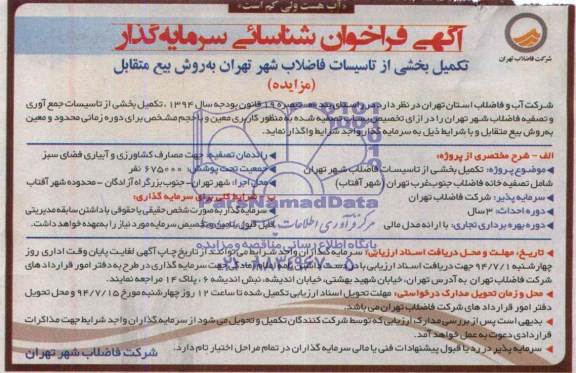 «آب هست ولی کم است»
شرکت فاضلاب تهران
آگهی فراخوان شناسائی سرمایه‌گذار
تکمیل بخشی از تاسیسات فاضلاب شهر تهران به‌روش بیع متقابل
(مزایده)
شرکت آب و فاضلاب استان تهران در نظر دارد، در راستای بند تبصره ۱۹ قانون بودجه سال ۱۳۹۴، تکمیل بخشی از تاسیسات جمع آوری
و تصفیه فاضلاب شهر تهران را در ازای تخصیص پساب تصفیه شده به منظور کاربری معین و با حجم مشخص برای دوره زمانی محدود و معین
به‌روش بیع متقابل و با شرایط ذیل به سرمایه گذار واجد شرایط واگذار نماید.
الف - شرح مختصری از پروژه:
موضوع پروژه: تکمیل بخشی از تاسیسات فاضلاب شهر تهران
شامل تصفیه خانه فاضلاب جنوب‌غرب تهران (شهر آفتاب)
سرمایه پذیر: شرکت فاضلاب تهران
دوره احداث: ۳ سال
دوره بهره برداری تجاری: با ارائه مدل مالی
راندمان تصفیه: جهت مصارف کشاورزی و آبیاری فضای سبز
جمعیت تحت پوشش: ۶۷۵۰۰۰ نفر
محل اجرا: شهر تهران - جنوب بزرگراه آزادگان - محدوده شهر آفتاب
ب - شرایط کلی برای سرمایه گذاری:
سرمایه گذار به صورت شخص حقیقی یا حقوقی با داشتن سابقه مدیریتی
قابل قبول تامین و تخصیص سرمایه مورد نیاز را به‌عهده خواهد داشت.
ParsNamadData
مرکز فرآوری اطلاعات پارس نماد داده ها
پایگاه اطلاع رسانی مناقصه و مزایده
۰۲۱-۸۸۳۴۹۶۷۰-۵
تاریخ، مهلت و محل دریافت اسناد ارزیابی: سرمایه گذاران واجد شرایط می‌توانند از تاریخ چاپ آگهی لغایت پایان وقت اداری روز
چهارشنبه ۹۴/۷/۱ جهت دریافت اسناد ارزیابی با در دست داشتن جهت سرمایه گذاری در طرح به دفتر امور قرارداد های
شرکت فاضلاب تهران به آدرس تهران، خیابان شهید بهشتی، خیابان اندیشه، نبش اندیشه ۶، پلاک ۱۴ مراجعه نمایند.
محل و زمان تحویل مدارک درخواستی: مهلت تحویل اسناد ارزیابی تکمیل شده تا ساعت ۱۲ روز چهارشنبه مورخ ۹۴/۷/۱۵ و محل تحویل
دفتر امور قرارداد های شرکت فاضلاب تهران می‌باشد.
بدیهی است پس از بررسی مدارک ارزیابی که توسط شرکت کنندگان تکمیل و تحویل می‌شود از سرمایه گذاران واجد شرایط جهت مذاکرات
قراردادی دعوت به عمل خواهد آمد.
سرمایه پذیر در رد یا قبول پیشنهادات فنی یا مالی سرمایه گذاران در تمام مراحل اختیار تام دارد.
شرکت فاضلاب شهر تهران